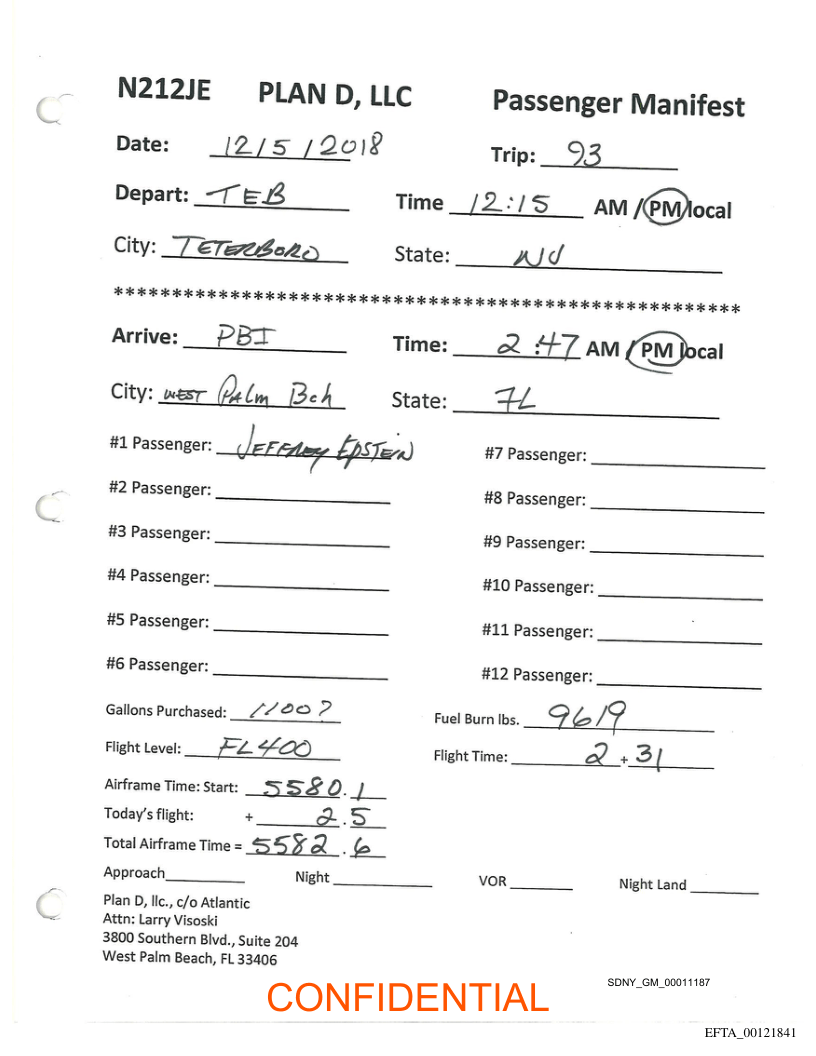 N212JE PLAN D, LLC Passenger Manifest
Date: 12/5/2018 Trip: 93
Depart: TEB Time 12:15 AM / PM local
City: TETERBORO State: NJ
******************************************************
Arrive: PBI Time: 2:47 AM / PM local
City: WEST PALM Bch State: FL
#1 Passenger: JEFFREY EPSTEIN #7 Passenger:
#2 Passenger: #8 Passenger:
#3 Passenger: #9 Passenger:
#4 Passenger: #10 Passenger:
#5 Passenger: #11 Passenger:
#6 Passenger: #12 Passenger:
Gallons Purchased: 1100? Fuel Burn lbs. 9619
Flight Level: FL400 Flight Time: 2 + 31
Airframe Time: Start: 5580.1
Today's flight: + 2.5
Total Airframe Time = 5582.6
Approach Night VOR Night Land
Plan D, llc., c/o Atlantic
Attn: Larry Visoski
3800 Southern Blvd., Suite 204
West Palm Beach, FL 33406
SDNY_GM_00011187
CONFIDENTIAL
EFTA_00121841